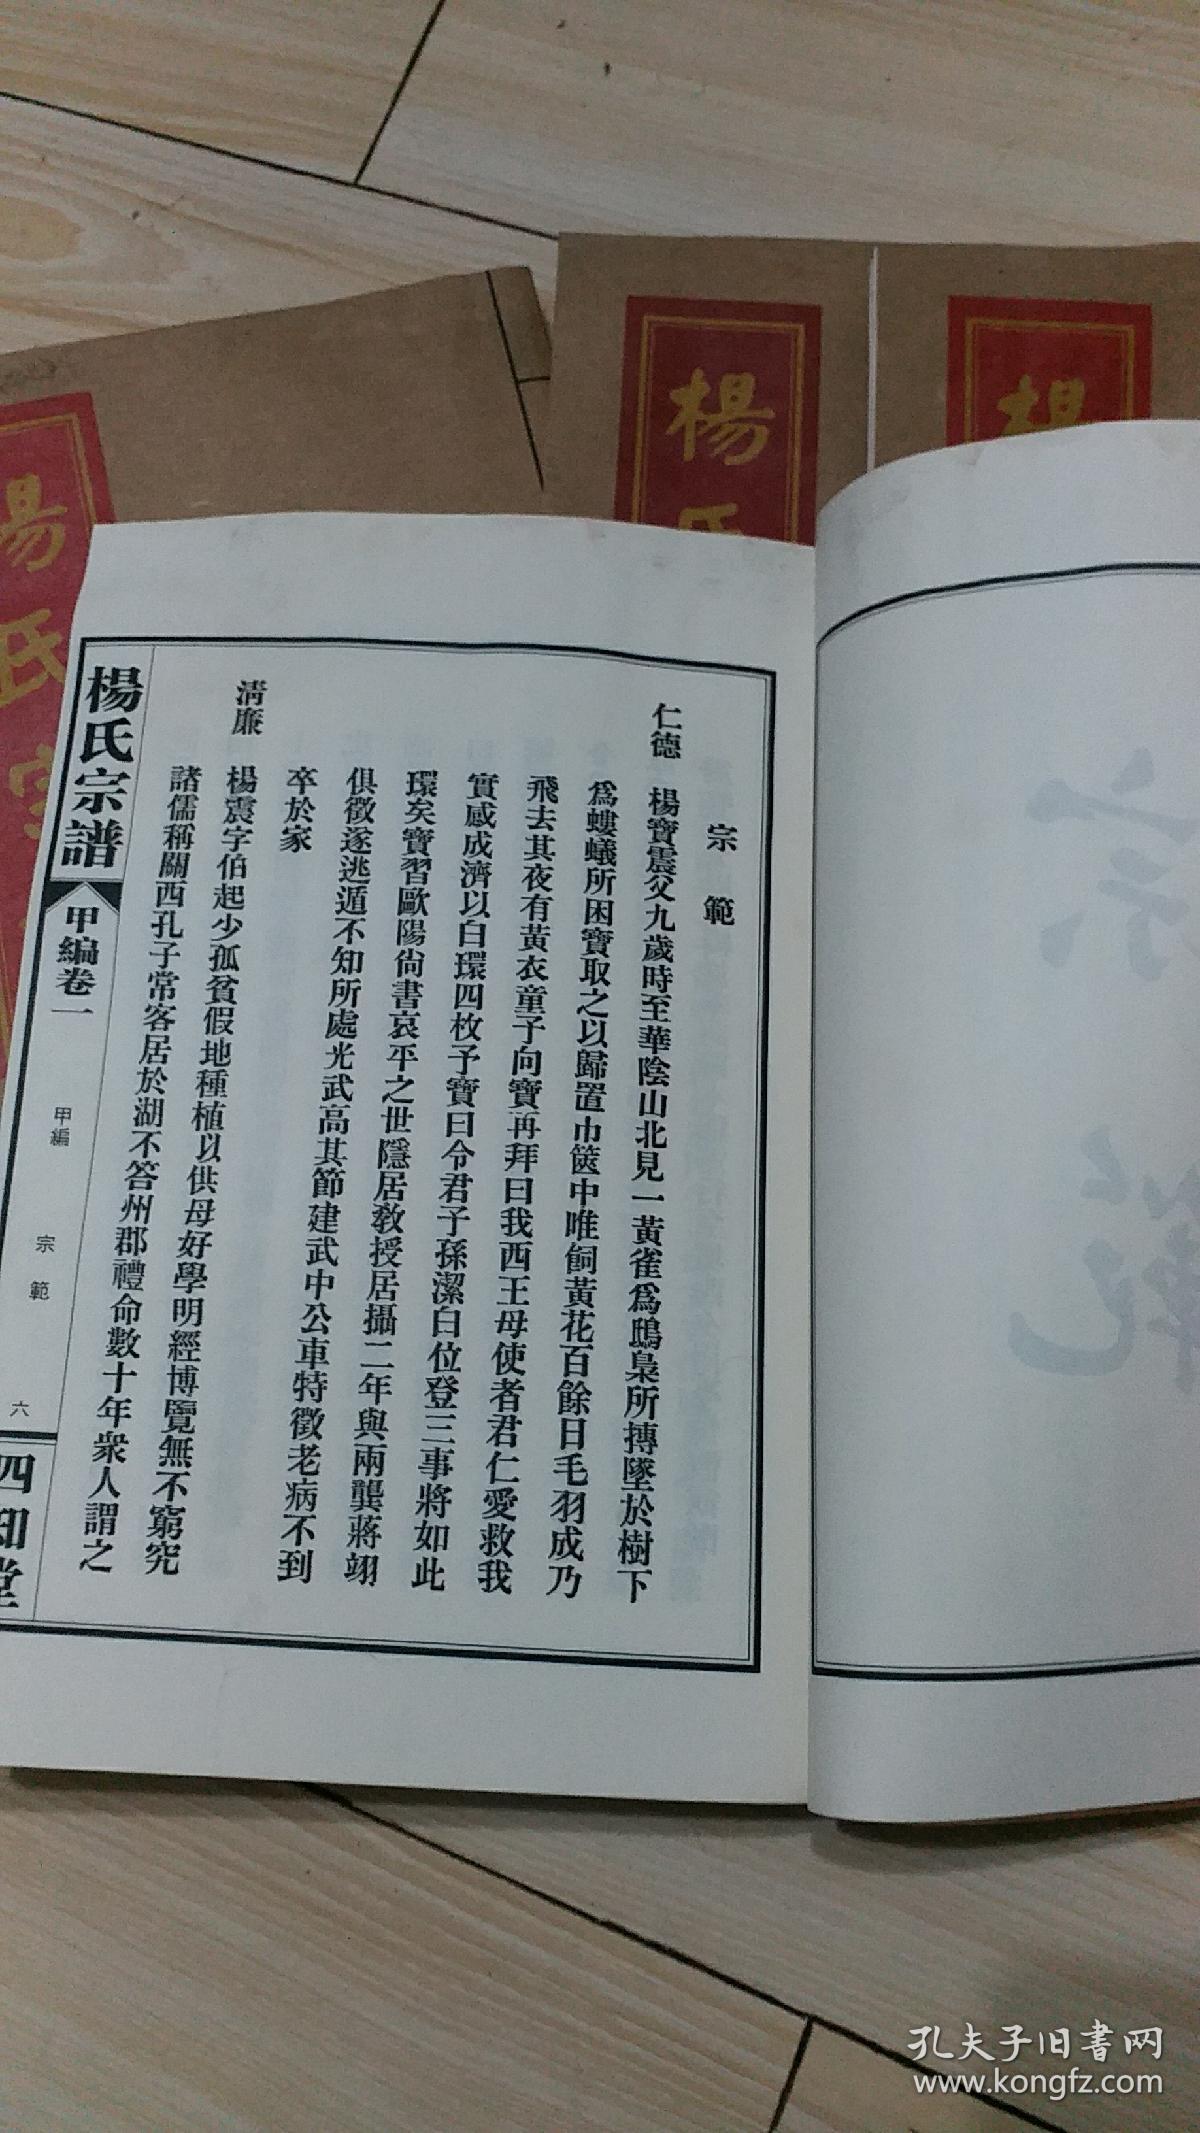 楊
楊氏
楊氏宗
宗範
仁德
楊寶震父九歲時至華陰山北見一黃雀爲鴟梟所搏墜於樹下
爲螻蟻所困寶取之以歸置巾篋中唯飼黃花百餘日毛羽成乃
飛去其夜有黃衣童子向寶再拜曰我西王母使者君仁愛救我
實感成濟以白環四枚予寶曰令君子孫潔白位登三事將如此
環矣寶習歐陽尙書哀平之世隱居敎授居攝二年與兩龔蔣翊
俱徵遂逃遁不知所處光武高其節建武中公車特徵老病不到
卒於家
清廉
楊震字伯起少孤貧假地種植以供母好學明經博覽無不窮究
諸儒稱關西孔子常客居於湖不答州郡禮命數十年衆人謂之
楊氏宗譜
甲編卷一
甲編
宗範
六
四知堂
宗範
孔夫子旧书网
www.kongfz.com